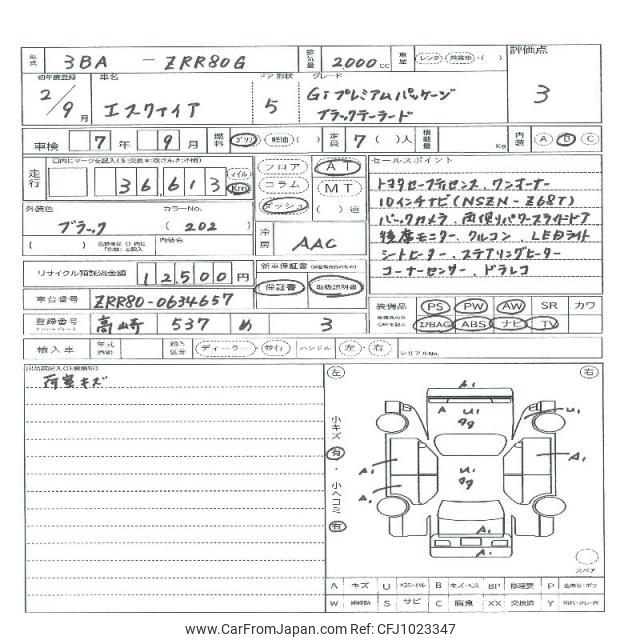 型式 3BA - ZRR80G 排気量 2,000 cc 車歴 レンタ・自家用・( ) 評価点
3
初年度登録 車名 ドア 形状 グレード
2/9月 エスクァイア 5 Gi プレミアムパッケージ
ブラックテーラード
車検 7年 9月 燃料 ガソリン 軽油 ( ) 定員 7 ( )人 積載量 Kg 内装 A B C
走行 36,613 マイル Km
フロア AT
コラム MT
ダッシュ ( )速
セールスポイント
トヨタセーフティセンス、ワンオーナー
10インチナビ(NSZN-Z68T)
バックカメラ、両側パワースライドドア
後席モニター、クルコン、LEDライト
シートヒーター、ステアリングヒーター
コーナーセンサー、ドラレコ
外装色 カラーNo.
ブラック ( 202 )
冷房 AAC
リサイクル預託済金額 12,500円
新車保証書
保証書 取扱説明書
車台番号 ZRR80-0634657
登録番号 高崎 537 め 3
装備品 PS PW AW SR カワ
エアBAG ABS ナビ TV
輸入車 年式 輸入区分 ディーラー・並行 ハンドル 左・右 シリアルNo.
雨窓キズ
左 右
小キズ 有・小ヘコミ 有
A1
A U1
99
U1
A1
A1
A1
U1
99
A1
A1
スペア
A キズ U B BP 修理要 P
W S サビ C 腐食 XX 交換済 Y
www.CarFromJapan.com - CFJ1023347